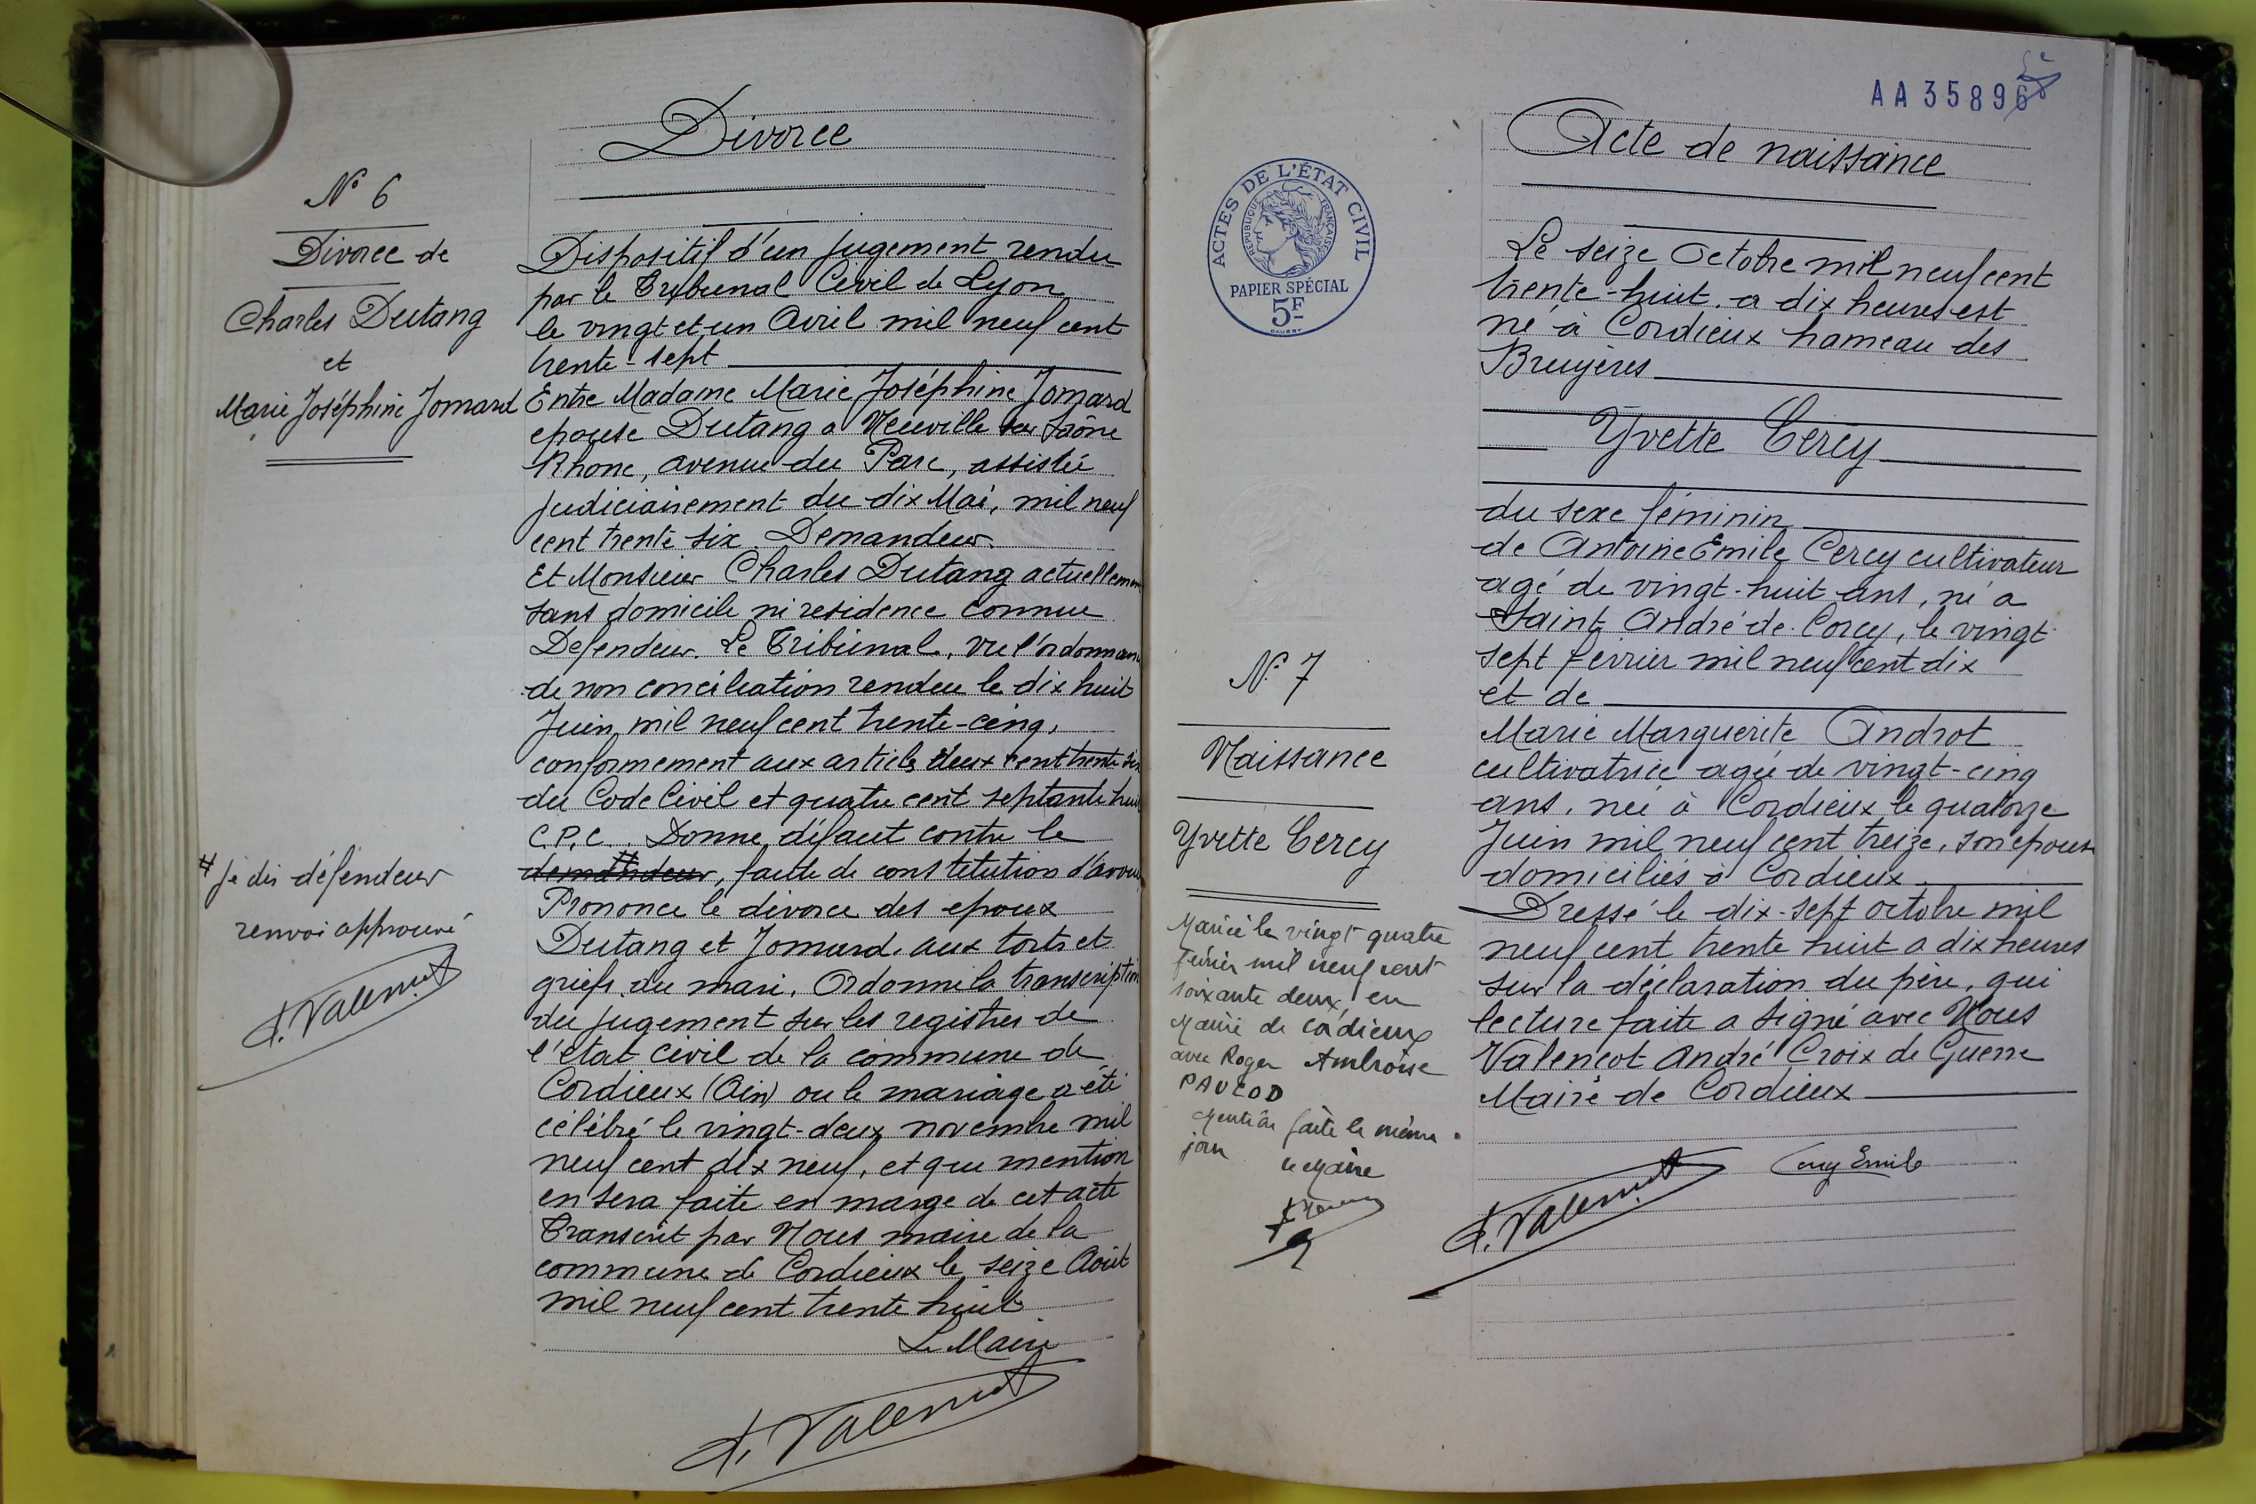 N° 6
Divorce de
Charles Dutang
et
Marie Joséphine Jomard
# Je dis défendeur
renvoi approuvé
A. Valençot
Divorce
Dispositif d'un jugement rendu
par le Tribunal Civil de Lyon
le vingt et un Avril mil neuf cent
trente-sept
Entre Madame Marie Joséphine Jomard
epouse Dutang a Neuville sur Saône
Rhone, avenue du Parc, assistée
judiciairement du dix Mai, mil neuf
cent trente six. Demandeur
Et Monsieur Charles Dutang actuellemen
sans domicile ni residence connue
Defendeur. Le Tribunal, vu l'ordonnan
de non conciliation rendue le dix huit
Juin mil neuf cent trente-cinq,
conformement aux articls deux cent trente six
du Code Civil et quatre cent septante huit
C.P.C. Donne défaut contre le
demandeur #, faute de constitution d'avoué
Prononce le divorce des epoux
Dutang et Jomard, aux torts et
griefs du mari, Ordonne la transcription
du jugement sur les registres de
l'état civil de la commune de
Cordieux (Ain) ou le mariage a été
célébré le vingt-deux novembre mil
neuf cent dix neuf, et que mention
en sera faite en marge de cet acte
Transcrit par Nous maire de la
commune de Cordieux le seize Août
mil neuf cent trente huit
Le Maire
A. Valençot
ACTES DE L'ÉTAT CIVIL
RÉPUBLIQUE FRANÇAISE
PAPIER SPÉCIAL
5F
N° 7
Naissance
Yvette Cercy
Mariée le vingt quatre
février mil neuf cent
soixante deux, en
Mairie de Cordieux
avec Roger Ambroise
PAUCOD
Mention faite le même
jour
Le Maire
AA 35896
Acte de naissance
Le seize Octobre mil neuf cent
trente-huit, a dix heures est
né à Cordieux hameau des
Bruyères
Yvette Cercy
du sexe féminin
de Antoine Emile Cercy cultivateur
agé de vingt-huit ans, né a
Saint André de Corcy, le vingt
sept fevrier mil neuf cent dix
et de
Marie Marguerite Androt
cultivatrice agée de vingt-cinq
ans, née à Cordieux le quatorze
Juin mil neuf cent treize, son epouse
domiciliés à Cordieux
Dressé le dix-sept octobre mil
neuf cent trente huit a dix heures
sur la déclaration du père, qui
lecture faite a signé avec Nous
Valençot André Croix de Guerre
Maire de Cordieux
Cercy Emile
A. Valençot